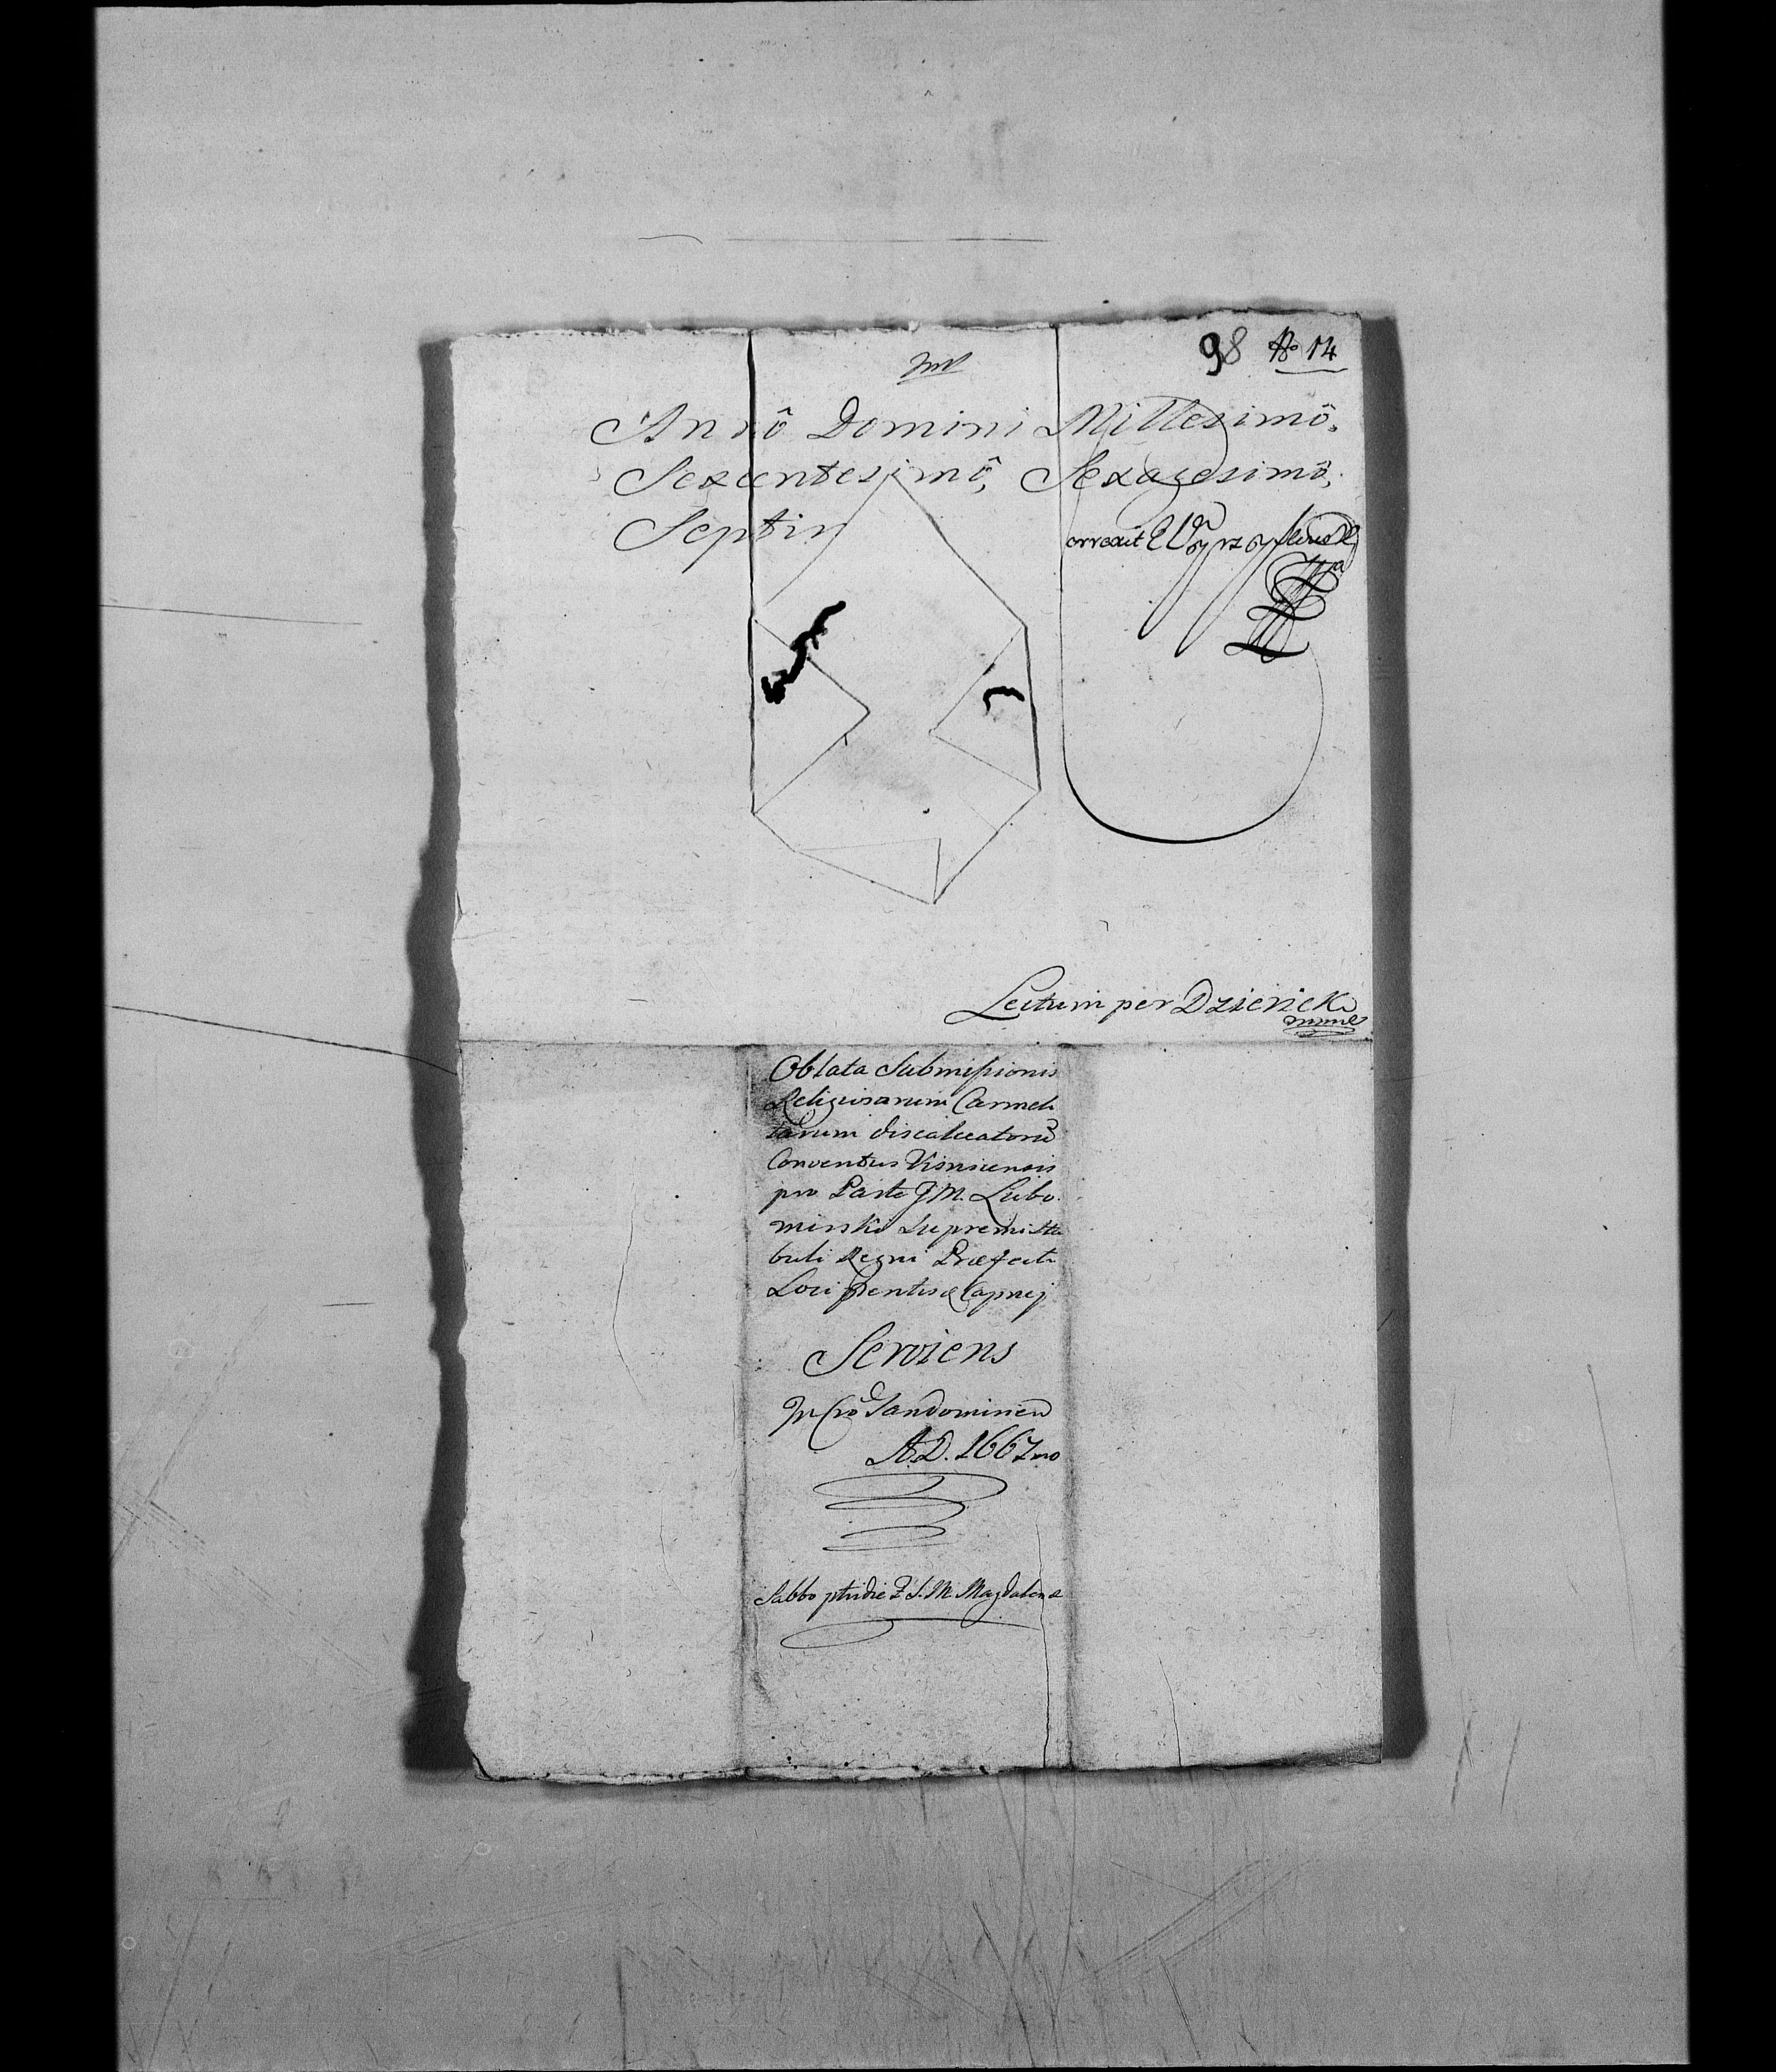 98 No 14
Annô Domini Millesimô,
Sexcentesimô, Sexagesimô,
Septim
Correxit
Lectum per Dzienicki
mmp
Oblata Submissionis
Religiosarum Carmeli
tarum discalceatorum
Conventus Visniciensis
pro Parte J M. Lubo
mirski Supremi Sta
buli Regni Præfecti
Loci
Serviens
In Cro Sandomirien
A.D. 1667mo
Sabbo ptridie F S. M. Magdalenæ